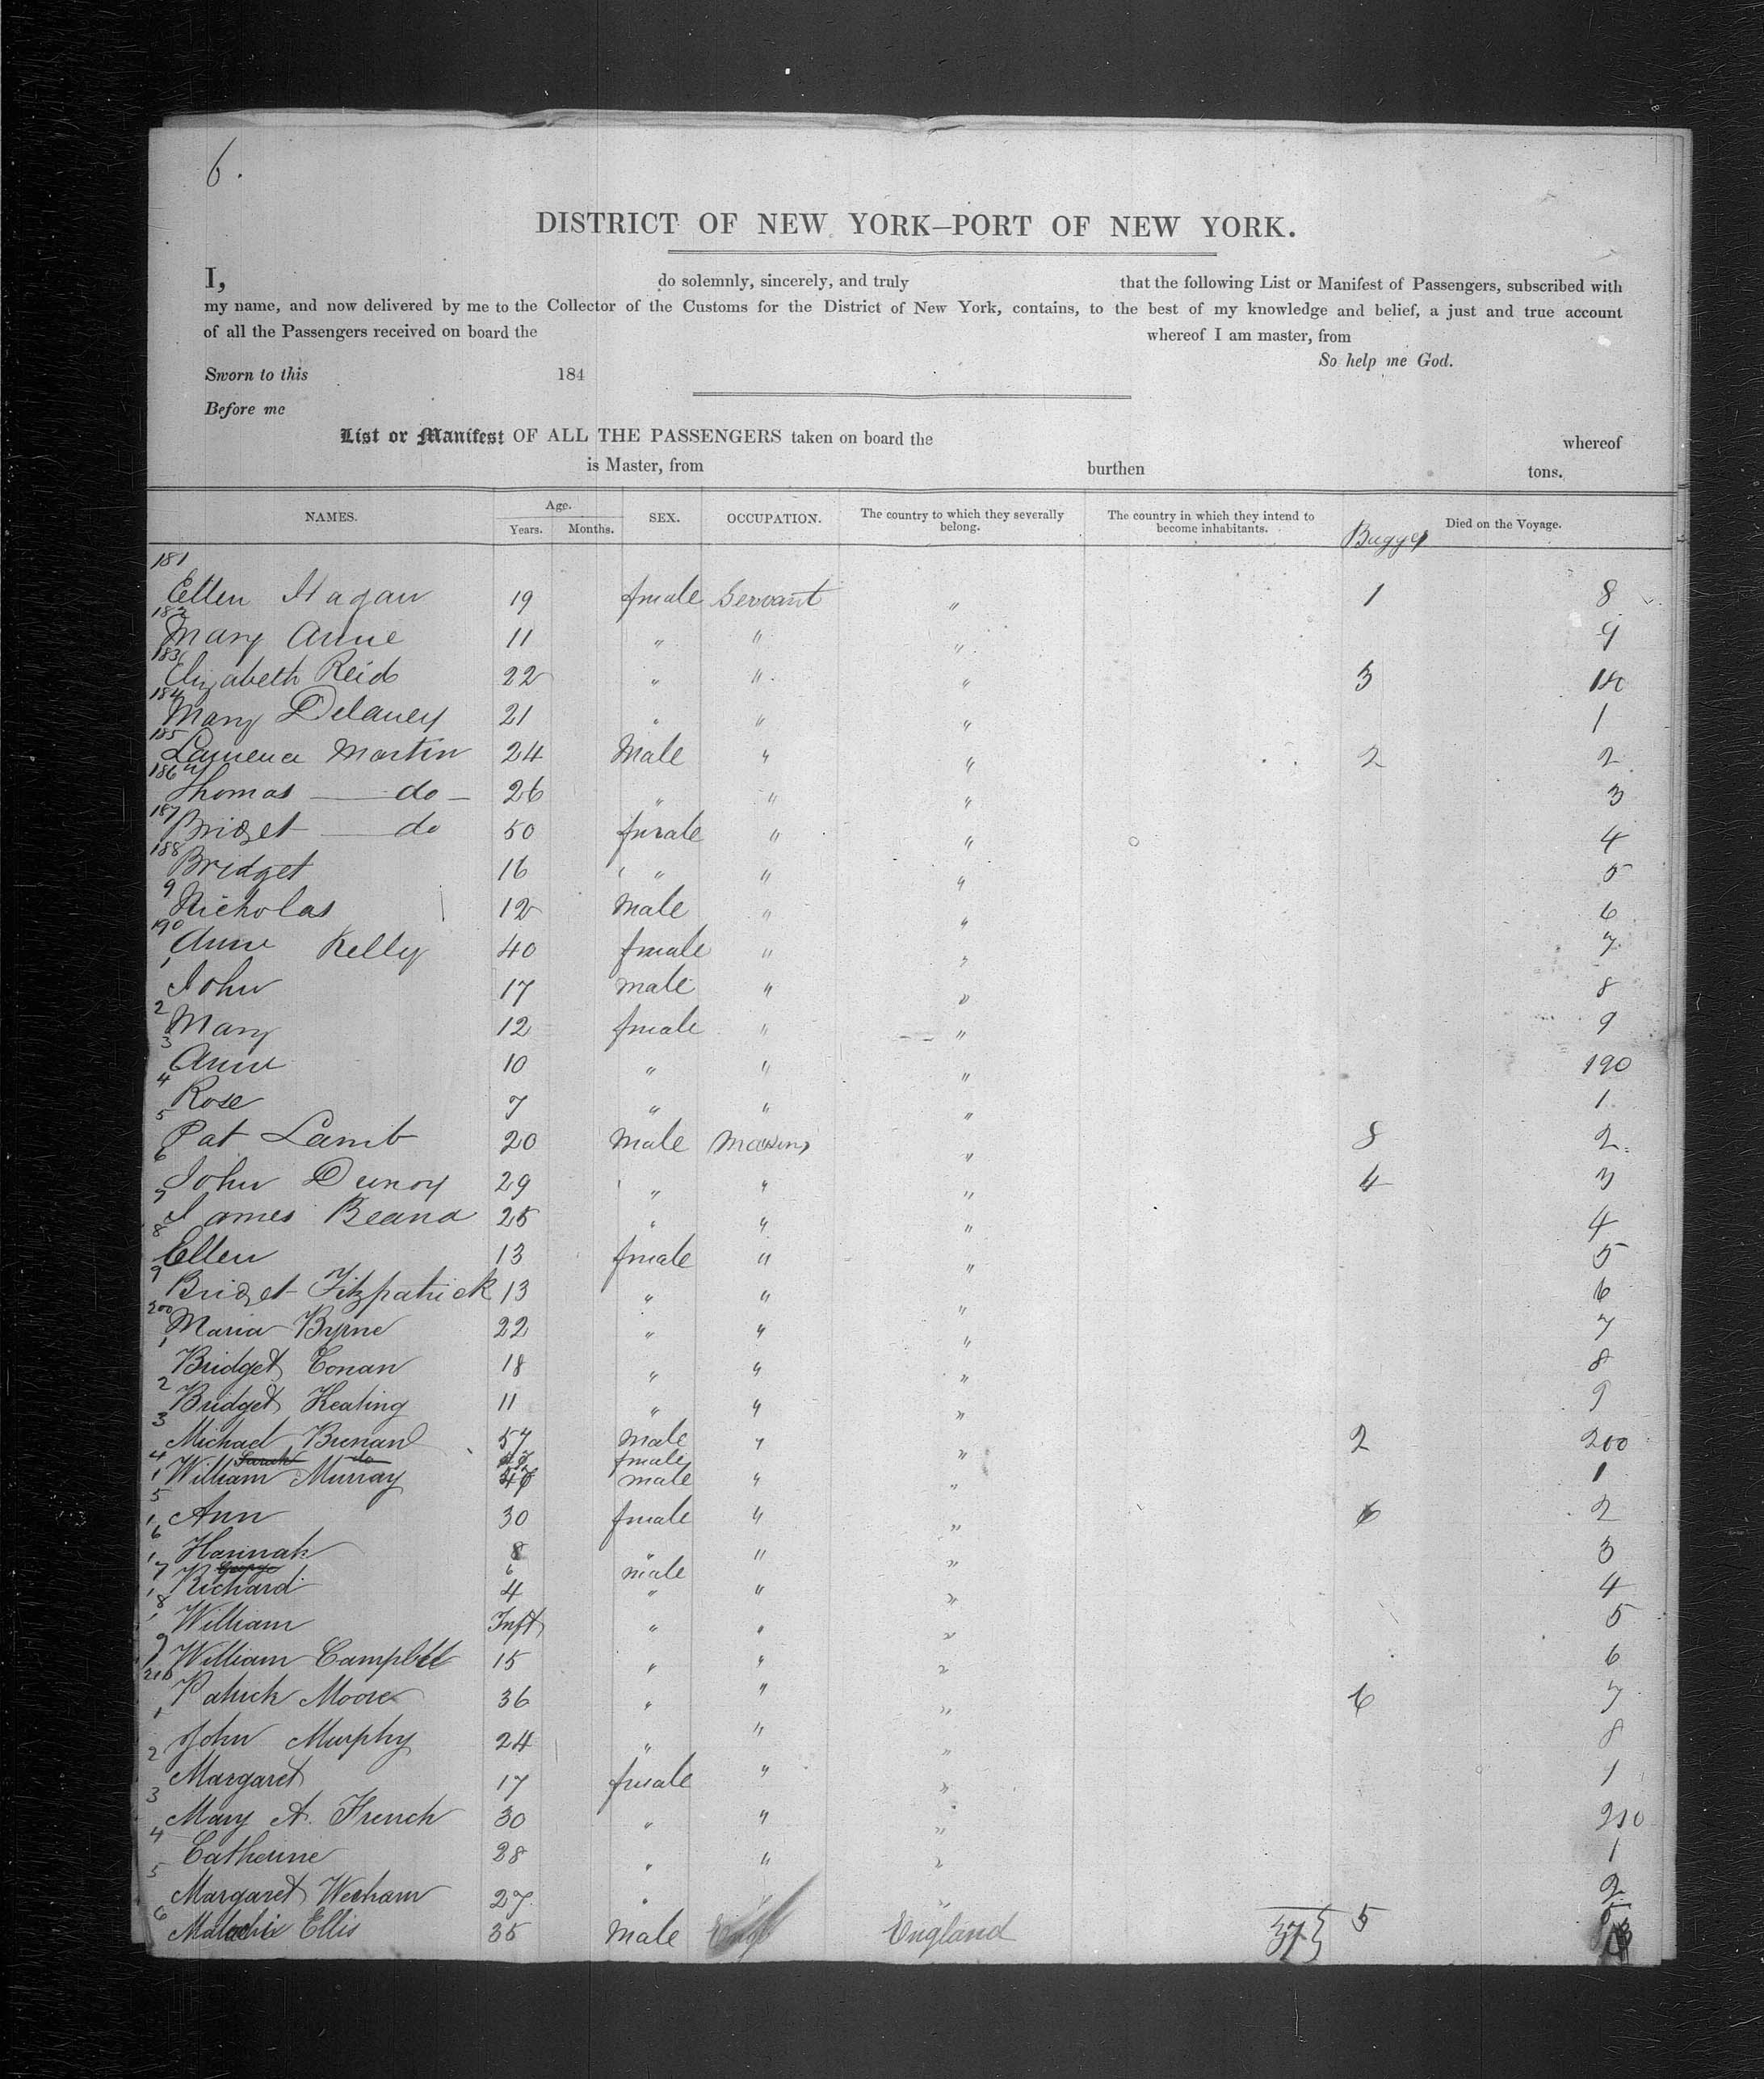 6.
DISTRICT OF NEW YORK—PORT OF NEW YORK.
I, do solemnly, sincerely, and truly that the following List or Manifest of Passengers, subscribed with
my name, and now delivered by me to the Collector of the Customs for the District of New York, contains, to the best of my knowledge and belief, a just and true account
of all the Passengers received on board the whereof I am master, from
So help me God.
Sworn to this 184
Before me
List or Manifest OF ALL THE PASSENGERS taken on board the whereof
is Master, from burthen tons.
NAMES. Age. Years. Months. SEX. OCCUPATION. The country to which they severally belong. The country in which they intend to become inhabitants. Died on the Voyage.
181 Ellen Hagan 19 female Servant " 1 8
182 Mary Anne 11 " " " 9
183 Elizabeth Reid 22 " " " 3
184 Mary Delaney 21 " " " 1
185 Laurence Martin 24 Male " " 2 2
186 Thomas — do — 26 " " " 3
187 Bridget — do 50 female " " 4
188 Bridget 16 " " " 5
9 Nicholas 12 Male " " 6
190 Anne Kelly 40 female " " 7
1 John 17 male " " 8
2 Mary 12 female " " 9
3 Anne 10 " " " 190
4 Rose 7 " " " 1
5 Pat Lamb 20 Male " 8 2
6 John 29 " " " 4 3
7 James 25 " " " 4
8 Ellen 13 female " " 5
9 Bridget Fitzpatrick 13 " " " 6
200 Maria Byrne 22 " " " 7
1 Bridget Conan 18 " " " 8
2 Bridget Keating 11 " " " 9
3 Michael Brenan 57 Male " " 2 200
Sarah do female
4 1 William Murray male " " 1
5 1 Ann 30 female " " 6 2
6 1 Hannah 8 " " " 3
George 6 male
7 1 Richard 4 " " " 4
8 1 William Inft " " " 5
9 William Campbell 15 " " " 6
210 Patrick Moore 36 " " " 6 7
1 John Murphy 24 " " " 8
2 Margaret 17 female " " 1
3 Mary A. French 30 " " " 210
4 Catherine 28 " " " 1
5 Margaret 27 " " " 2
6 Malachi Ellis 35 Male England 37 5